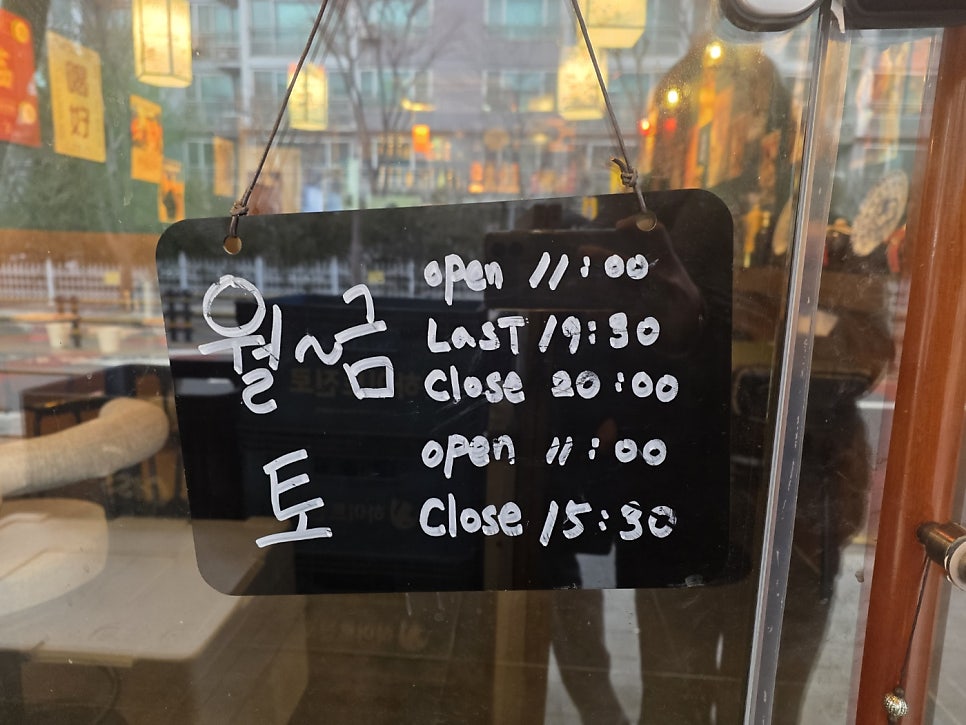 월~금
open 11:00
Last 19:30
Close 20:00
토
open 11:00
Close 15:30